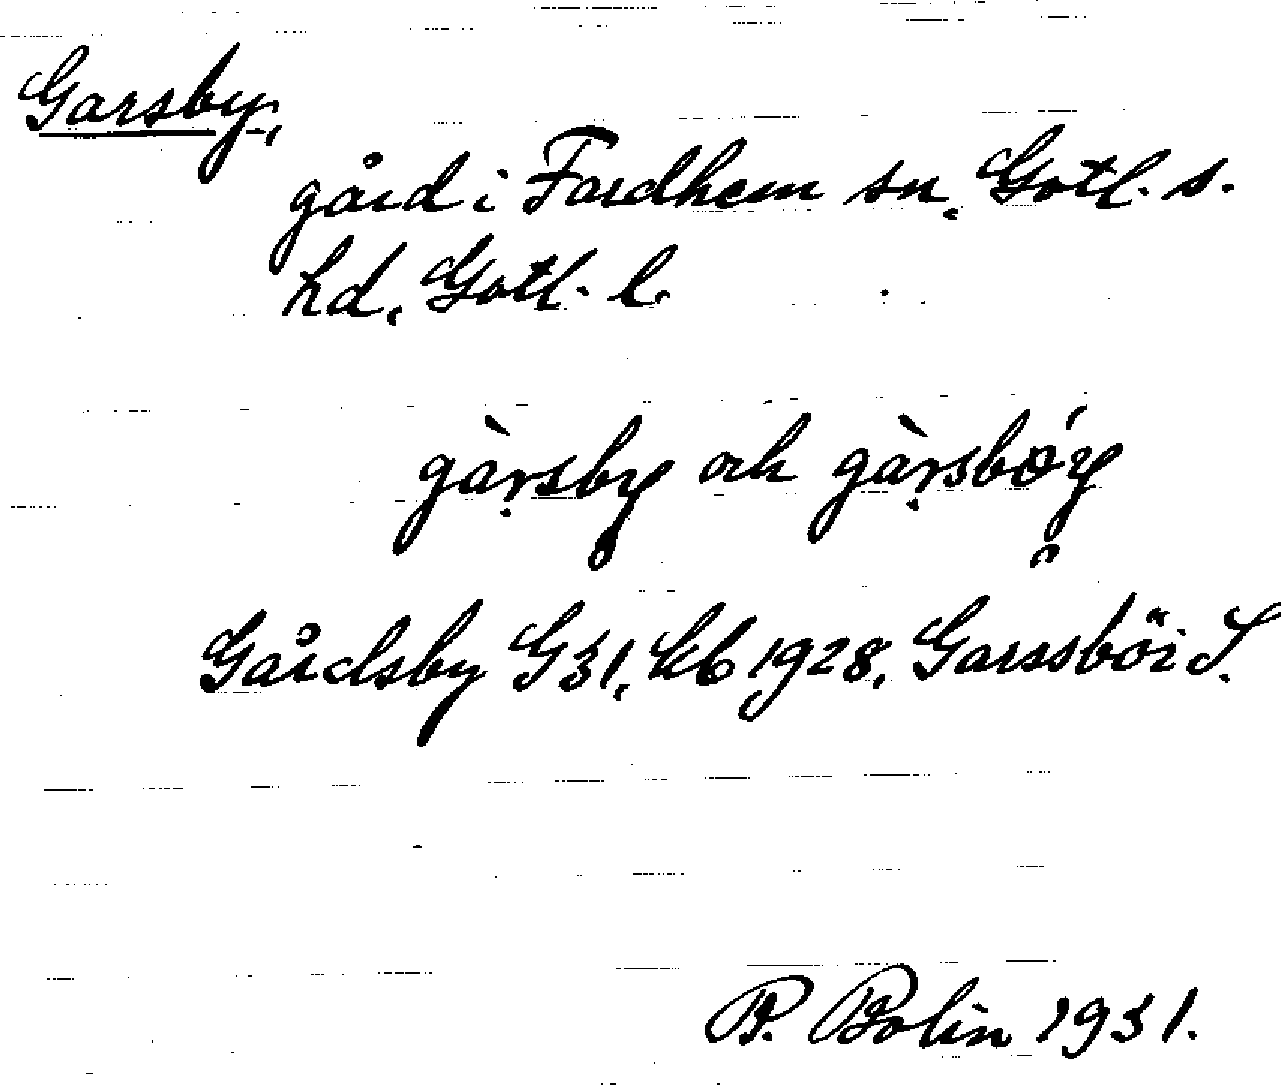 Garsby,
gård i Fardhem sn, Gotl. s.
hd, Gotl. l.
gàṛsby och gàṛsbøy
Gårdsby G31, kb 1928, Garssböi S.
P. Bolin 1931.